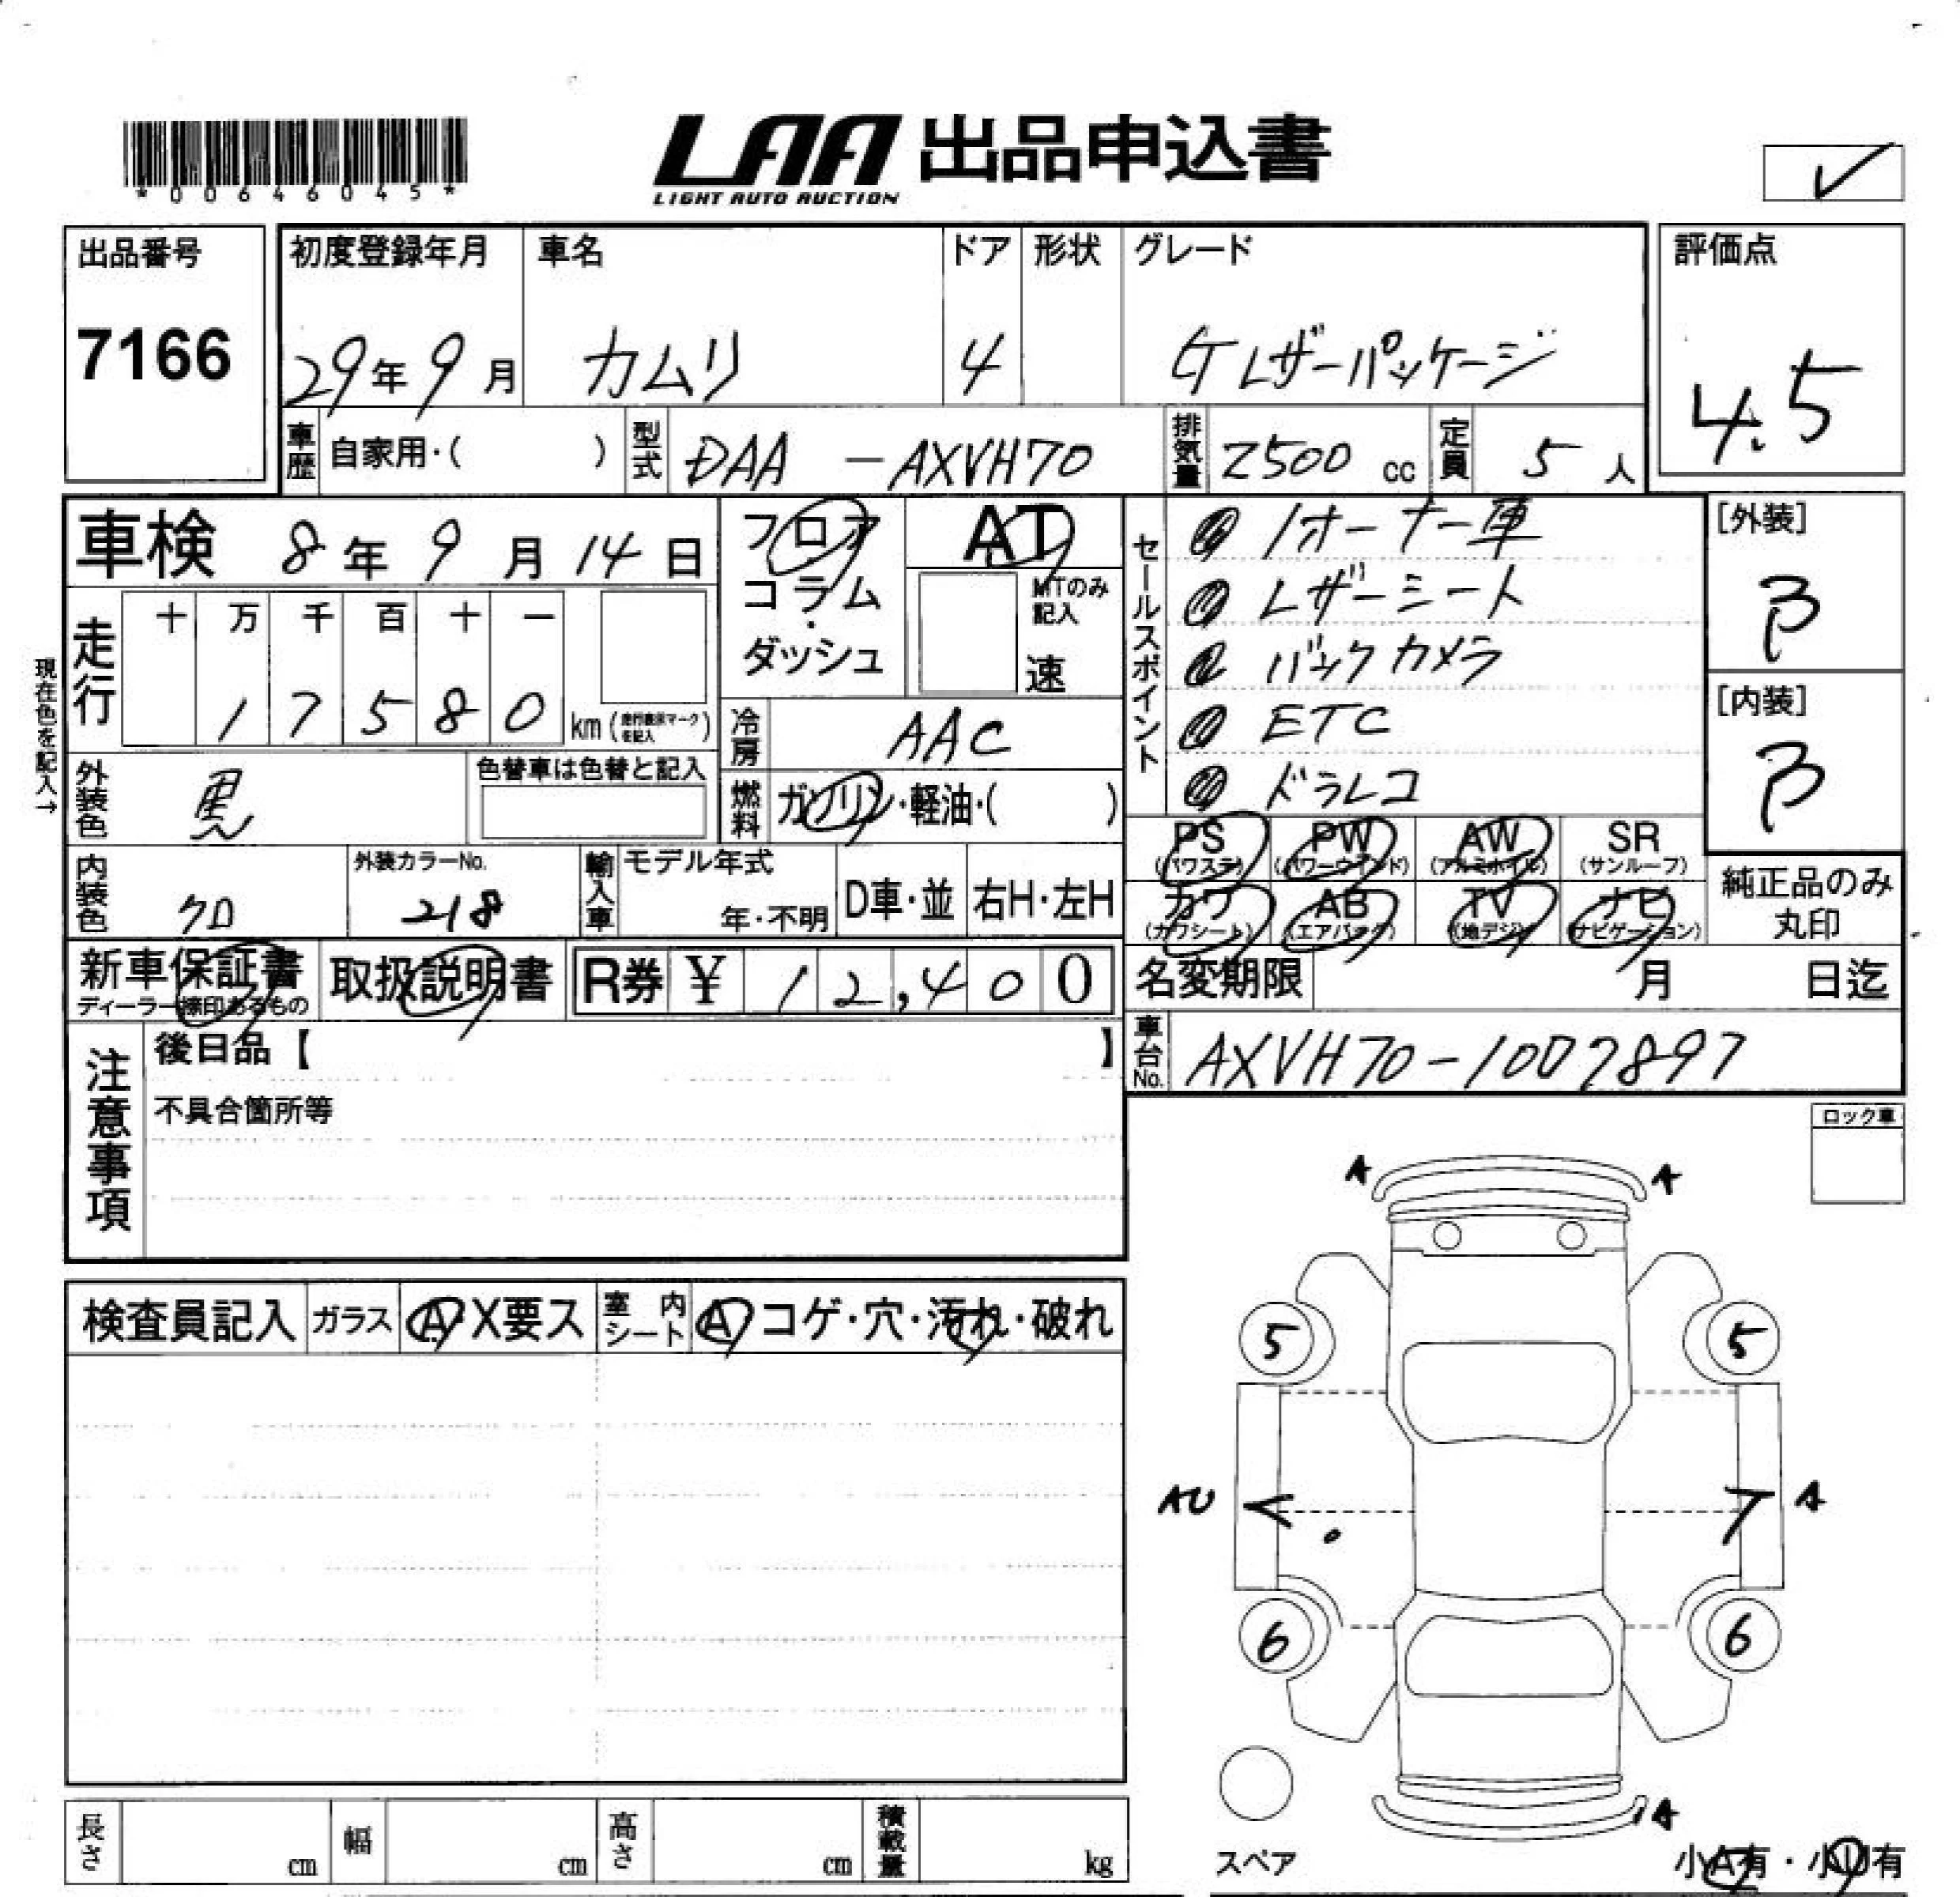 *00646045*
LAA 出品申込書
LIGHT AUTO AUCTION
✓
出品番号
7166
初度登録年月
29年9月
車名
カムリ
ドア
4
形状
グレード
G レザーパッケージ
評価点
4.5
車歴 自家用・( )
型式 DAA - AXVH70
排気量 2500 cc
定員 5 人
車検 8年9月14日
フロア
コラム
・
ダッシュ
AT
MTのみ
記入
速
走行
十 万 千 百 十 一
1 7 5 8 0 km (走行表示マークを記入)
現在色を記入→
外装色 黒
色替車は色替と記入
冷房 AAC
燃料 ガソリン・軽油・( )
内装色 クロ
外装カラーNo.
218
輸入車
モデル年式
年・不明
D車・並
右H・左H
セールスポイント
1オーナー車
レザーシート
バックカメラ
ETC
ドラレコ
[外装]
B
[内装]
B
PS (パワステ)
PW (パワーウインド)
AW (アルミホイル)
SR (サンルーフ)
カワ (カワシート)
AB (エアバック)
TV (地デジ)
ナビ (ナビゲーション)
純正品のみ
丸印
新車保証書
ディーラー捺印あるもの
取扱説明書
R券 ¥ 12,400
名変期限 月 日迄
車台No. AXVH70-1007897
注意事項
後日品【 】
不具合箇所等
ロック車
検査員記入 ガラス A・X要ス 室内シート A・コゲ・穴・汚れ・破れ
A A
5 5
AU A
6 6
A
スペア
小A有・小U有
長さ cm 幅 cm 高さ cm 積載量 kg